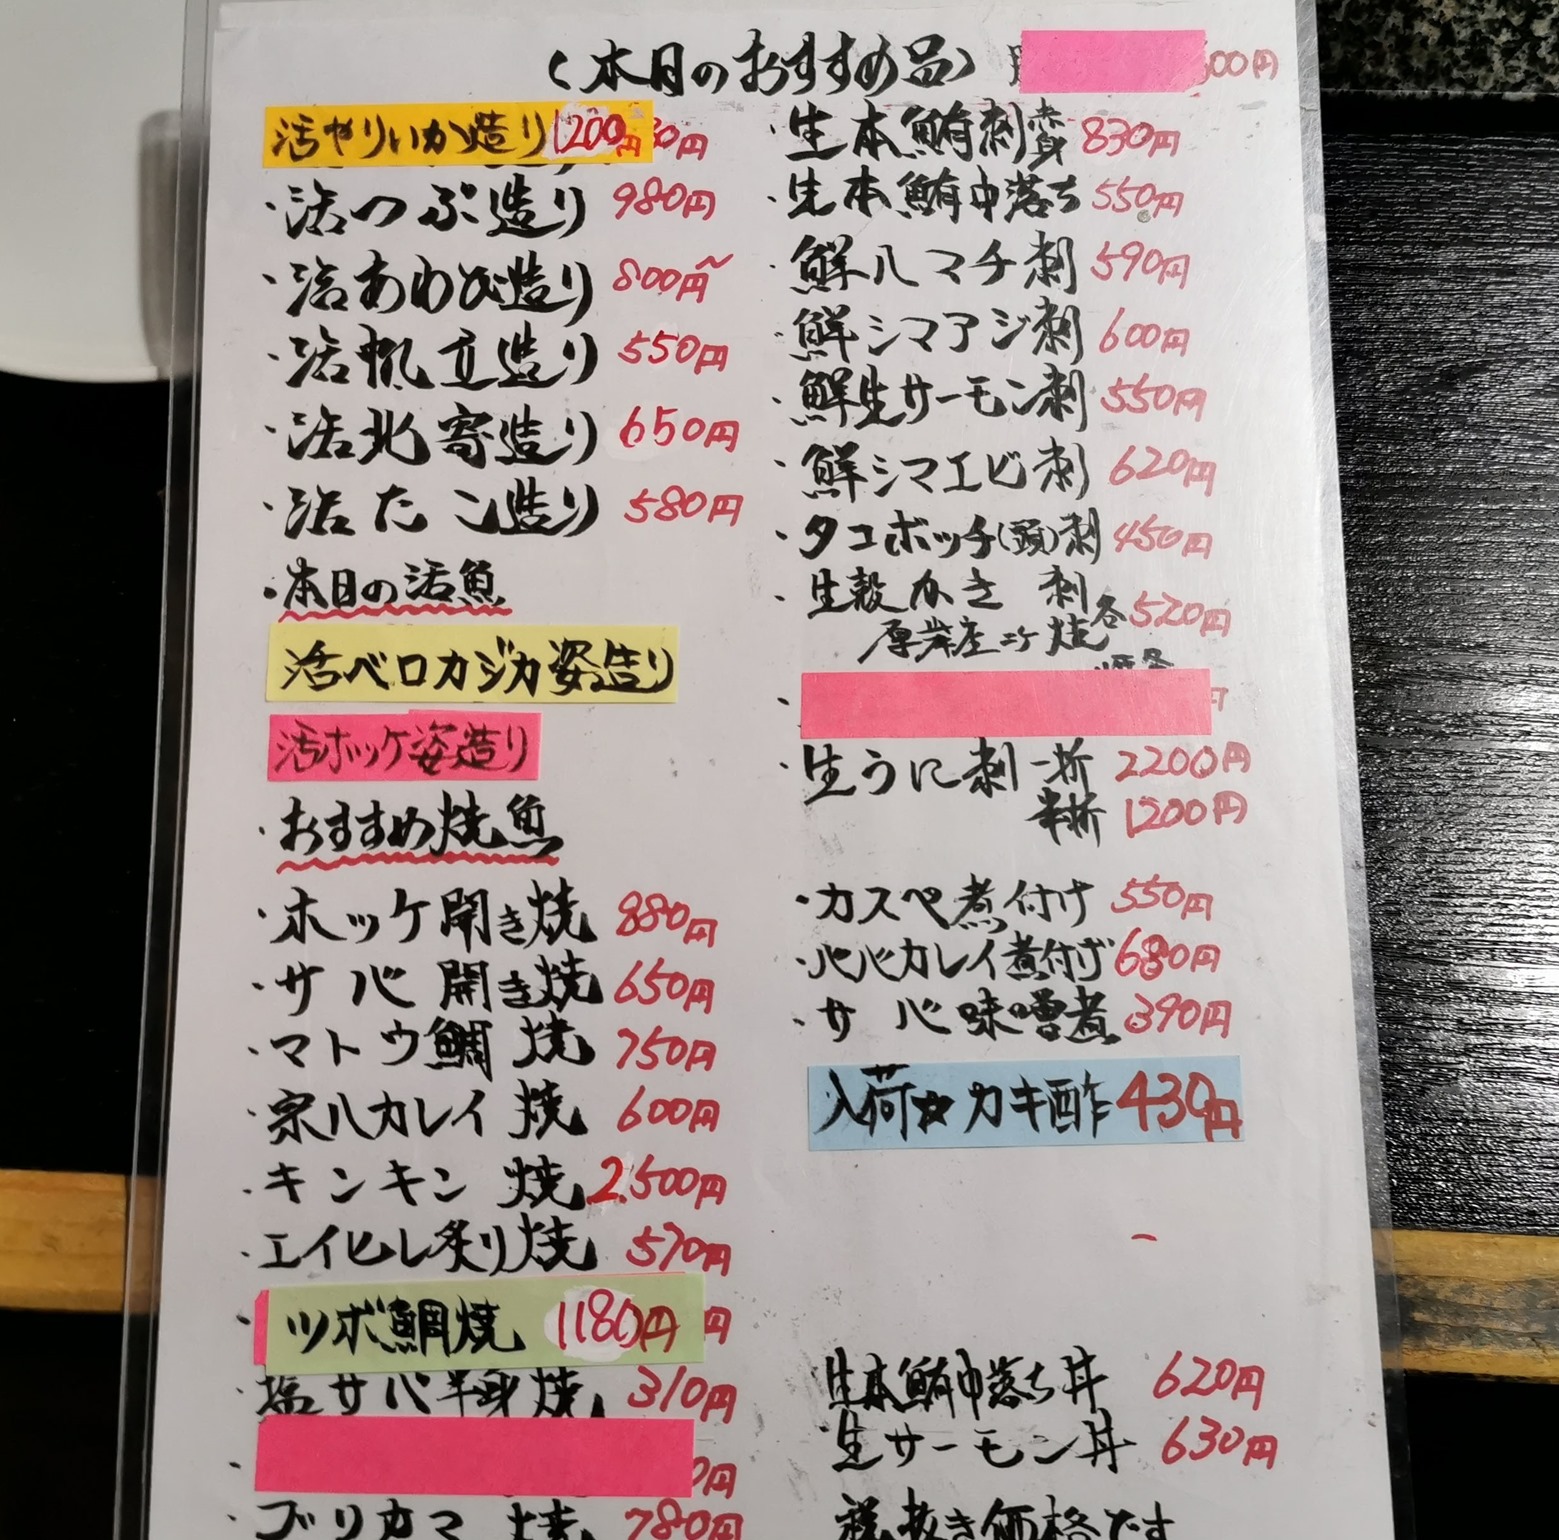 (本日のおすすめ品)
00円
活やりいか造り1200円
30円
・活つぶ造り 980円
・活あわび造り 800円~
・活帆立造り 550円
・活北寄造り 650円
・活たこ造り 580円
・本日の活魚
活ベロカジカ姿造り
活ホッケ姿造り
・おすすめ焼魚
・ホッケ開き焼 880円
・サバ開き焼 650円
・マトウ鯛焼 750円
・宗八カレイ焼 600円
・キンキン焼 2,500円
・エイヒレ炙り焼 570円
ツボ鯛焼 1180円
円
塩サバ半身焼 310円
0円
ブリカマ焼 780円
・生本鮪刺 赤身 830円
・生本鮪中落ち 550円
・鮮ハマチ刺 590円
・鮮シマアジ刺 600円
・鮮生サーモン刺 550円
・鮮シマエビ刺 620円
・タコボッチ(頭)刺 450円
・生殻かき 刺
厚岸産二ケ 焼 各520円
・生うに刺 一折 2200円
半折 1200円
・カスベ煮付け 550円
・ババカレイ煮付け 680円
・サバ味噌煮 390円
入荷☆カキ酢 430円
生本鮪中落ち丼 620円
生サーモン丼 630円
税抜き価格です